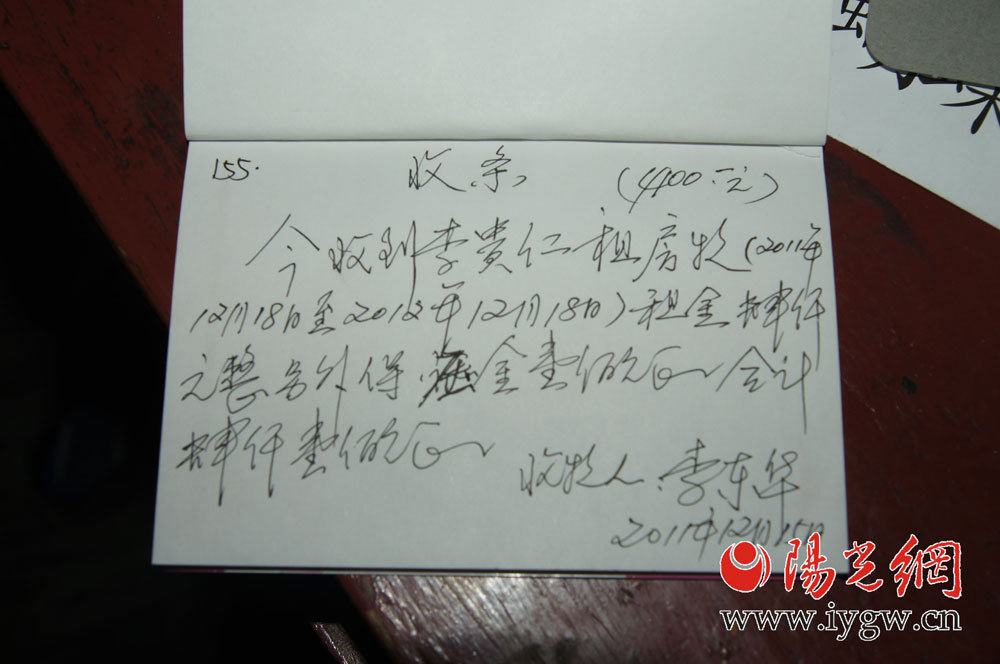 155. 收条 (4100.元)
今收到李贵仁租房款(2011年
12月18日至2012年12月18日)租金肆仟
元整另外保金壹佰元正合计
肆仟壹佰元正
收款人:李东华
2011年12月15日
陽光網
www.iygw.cn